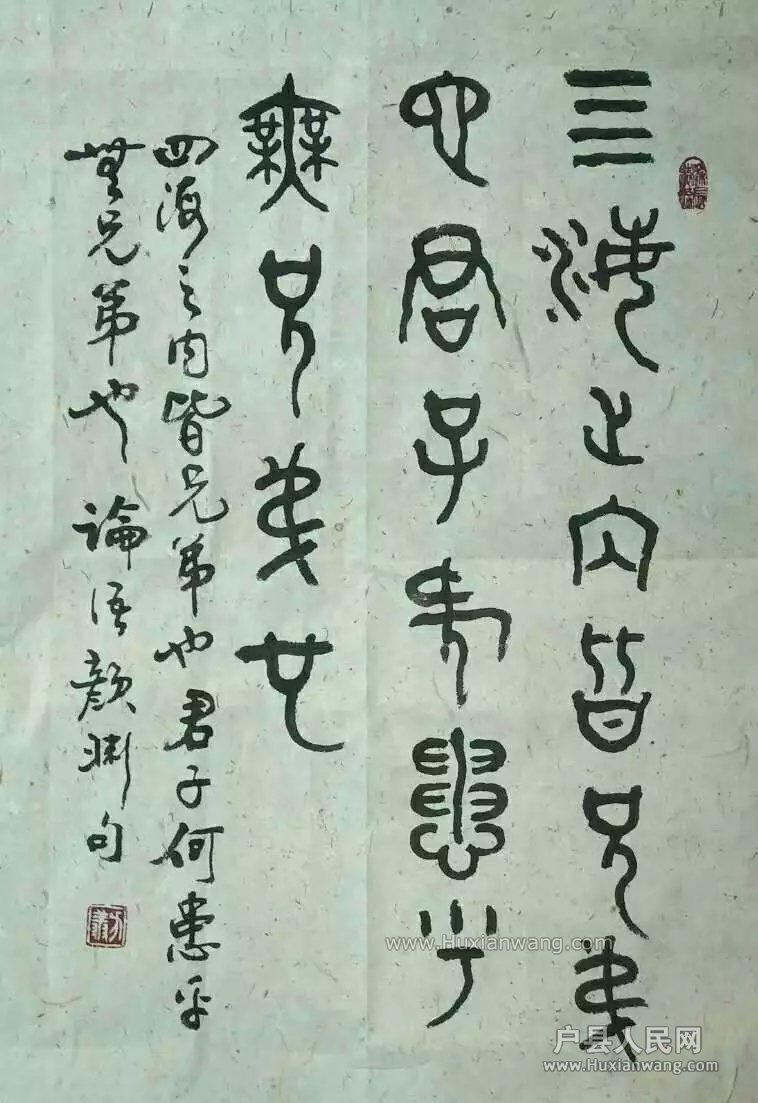 亖海之内皆兄弟
也君子何患乎
無兄弟也
四海之内皆兄弟也君子何患乎
無兄弟也論語顏淵句
www.Huxianwang.com
户县人民网
www.Huxianwang.com